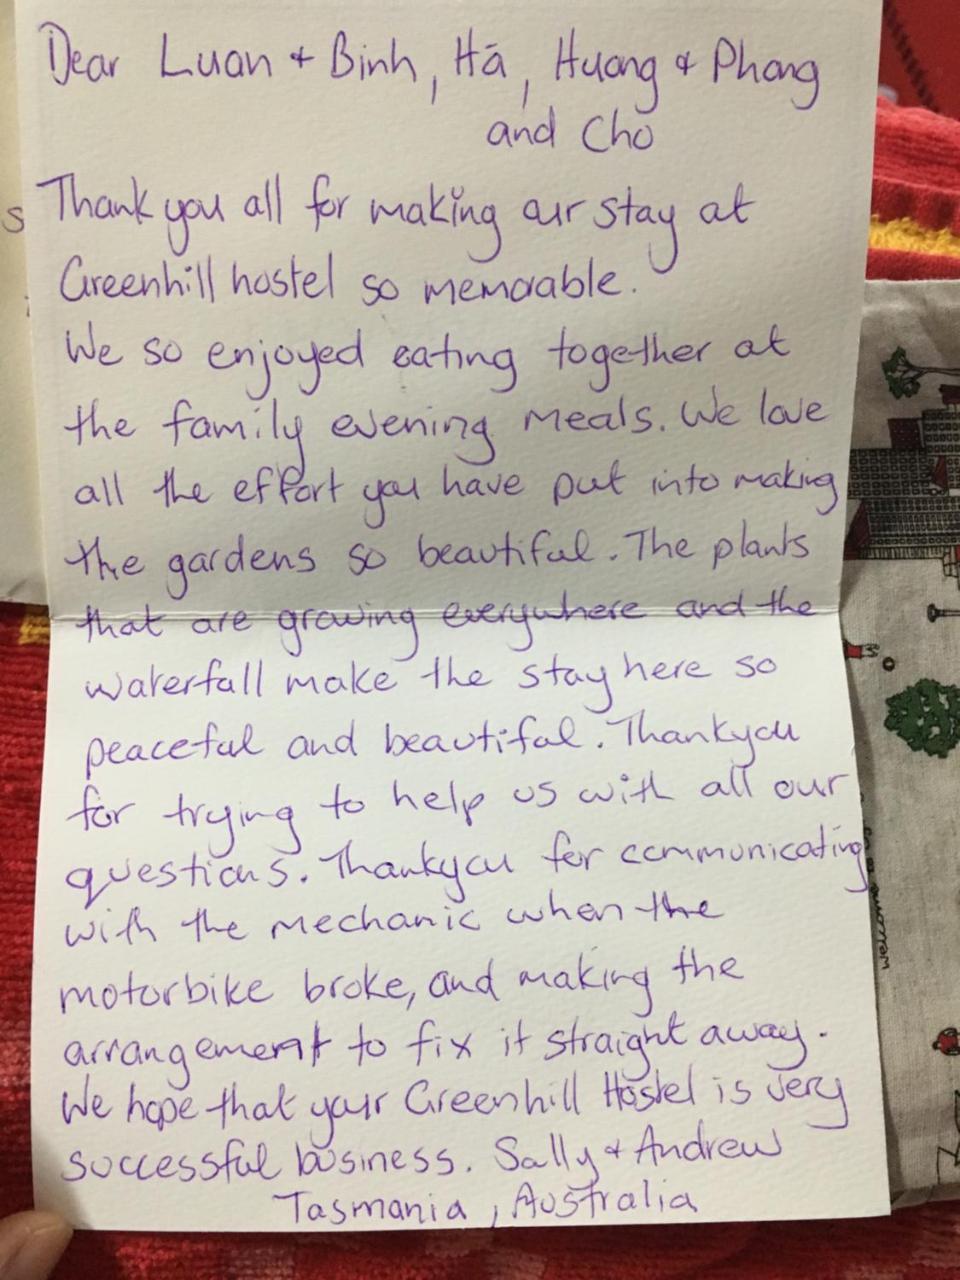 Dear Luan + Binh, Hā, Huong & Phong
and Cho
Thank you all for making our stay at
Greenhill hostel so memorable.
We so enjoyed eating together at
the family evening meals. We love
all the effort you have put into making
the gardens so beautiful. The plants
that are growing everywhere and the
waterfall make the stay here so
peaceful and beautiful. Thankyou
for trying to help us with all our
questions. Thankyou for communicating
with the mechanic when the
motorbike broke, and making the
arrangement to fix it straight away.
We hope that your Greenhill Hostel is very
successful business. Sally & Andrew
Tasmania, Australia